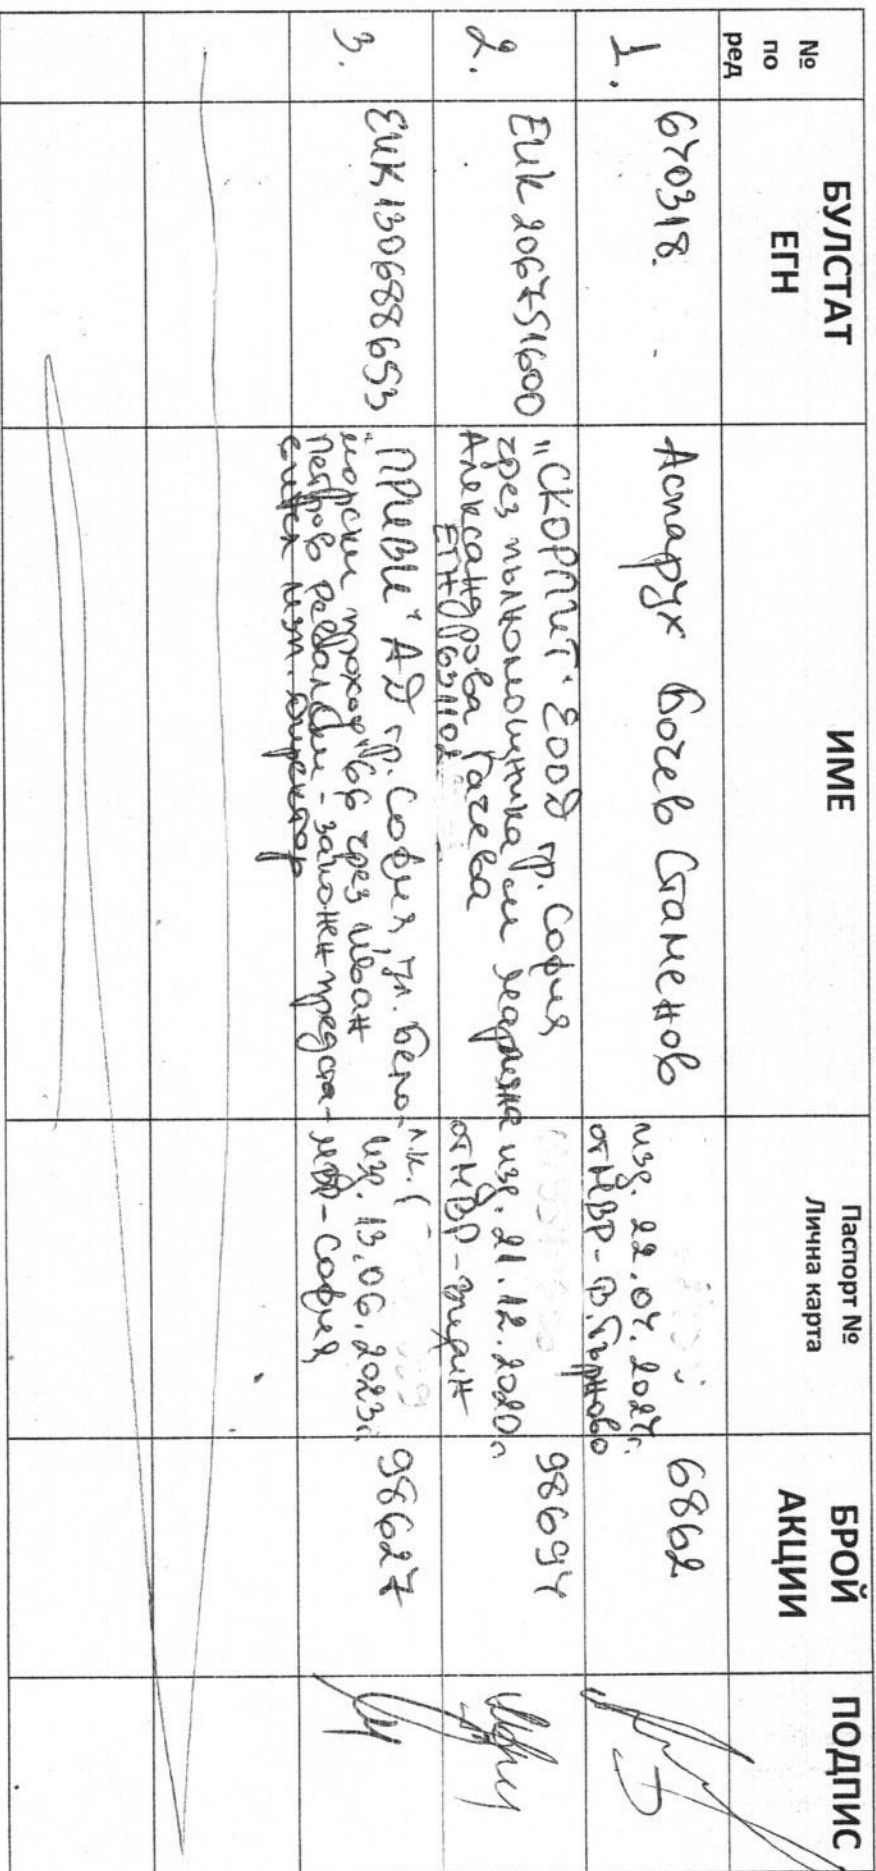 № по ред
БУЛСТАТ ЕГН
ИМЕ
Паспорт № Лична карта
БРОЙ АКЦИИ
ПОДПИС
1.
670318
Аспарух Бочев Стаменов
изд. 22.04.2024г.
от МВР - В. Търново
6862
2.
ЕИК 206751600
"СКОРПИТ" ЕООД гр. София
чрез пълномощника си Марияна
Александрова Гачева
ЕГН
изд. 21.12.2020г.
от МВР - Видин
98694
3.
ЕИК 130688653
"ПРИВИ" АД гр. София, ул. Бело-
морски проход 66 чрез Иван
Петров - законен предста-
вител изп. директор
л.к.
изд. 13.06.2023г.
МВР - София
98627